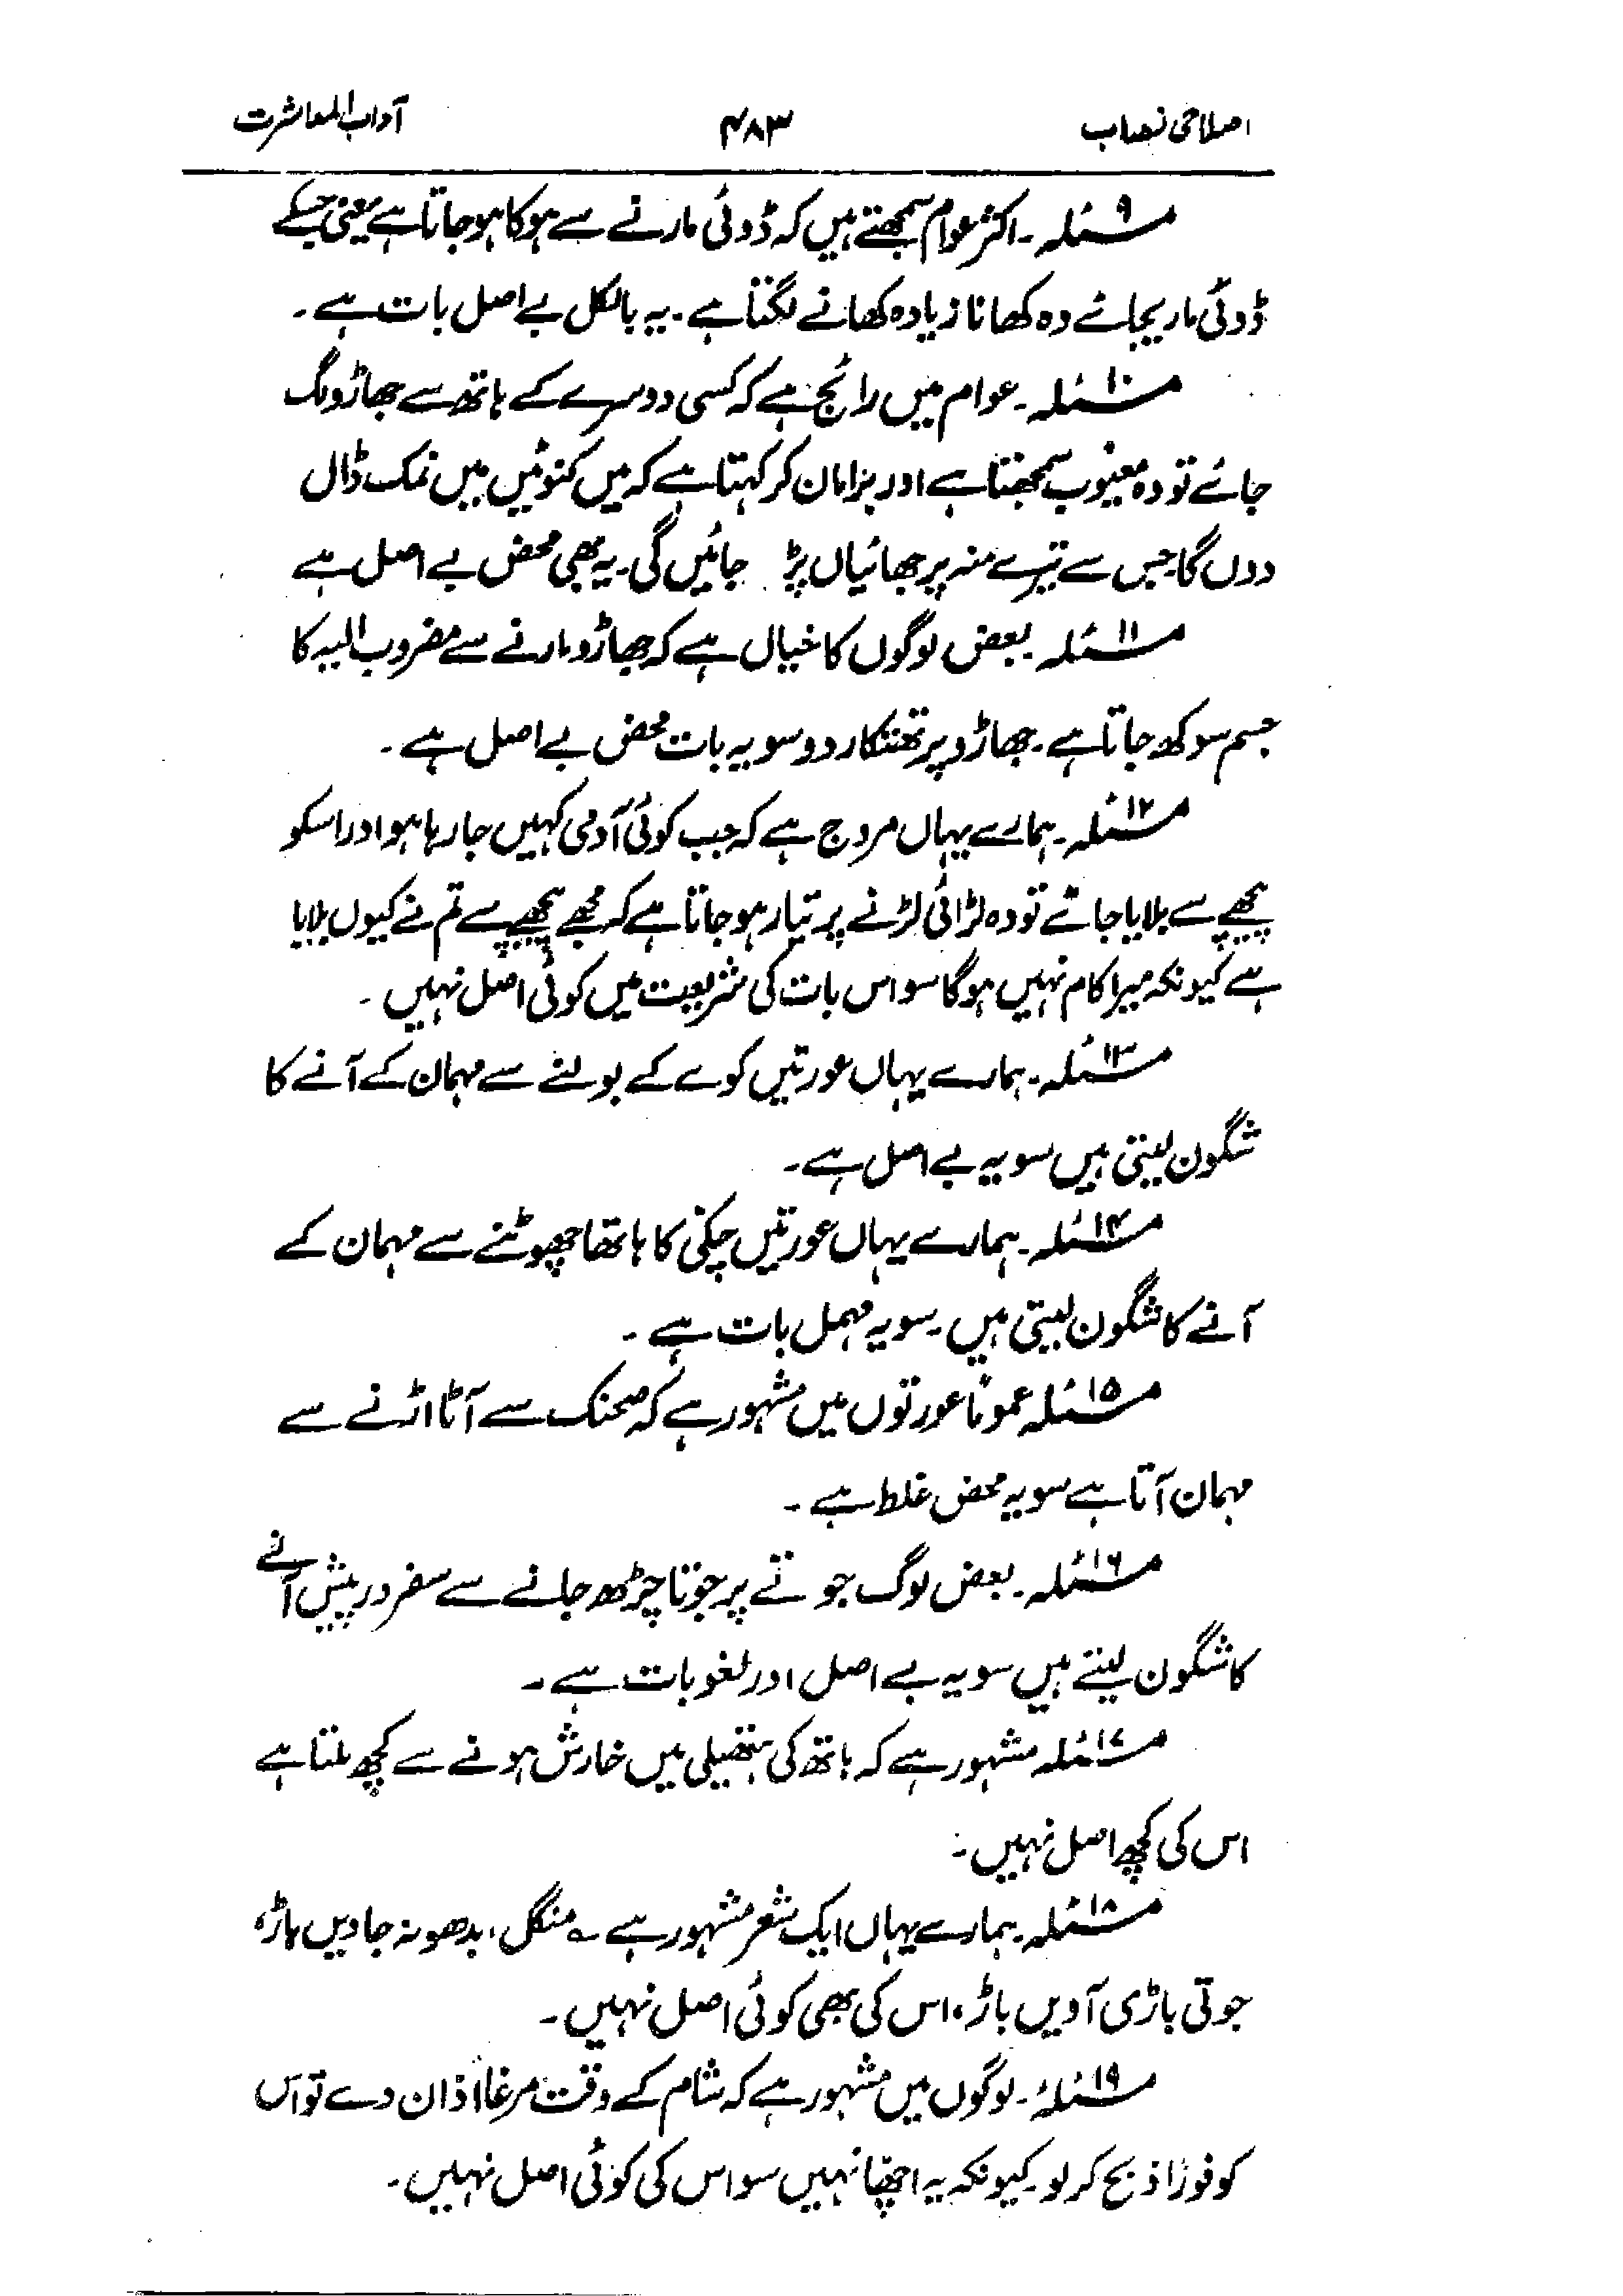 اصلاحی نصاب ۴۸۳ آداب المعاشرت
مسئلہ۹۔ اکثر عوام سمجھتے ہیں کہ ڈوئی مارنے سے ہوکا ہوجاتا ہے یعنی جسکے
ڈوئی ماریجائے وہ کھانا زیادہ کھانے لگتا ہے۔ یہ بالکل بے اصل بات ہے۔
مسئلہ۱۰۔ عوام میں رائج ہے کہ کسی دوسرے کے ہاتھ سے جھاڑو لگ
جائے تو وہ معیوب سمجھتا ہے اور برا مان کر کہتا ہے کہ میں کنوئیں میں نمک ڈال
دوں گا جس سے تیرے منہ پر جھائیاں پڑ جائیں گی۔ یہ بھی محض بے اصل ہے
مسئلہ۱۱۔ بعض لوگوں کا خیال ہے کہ جھاڑو مارنے سے مضروب الیہ کا
جسم سوکھ جاتا ہے۔ جھاڑو پر تھتکار دو سو یہ بات محض بے اصل ہے۔
مسئلہ۱۲۔ ہمارے یہاں مروج ہے کہ جب کوئی آدمی کہیں جا رہا ہو اور اسکو
پیچھے سے بلایا جائے تو وہ لڑائی لڑنے پر تیار ہو جاتا ہے کہ مجھے پیچھے سے تم نے کیوں بلایا
ہے کیونکہ میرا کام نہیں ہوگا سو اس بات کی شریعت میں کوئی اصل نہیں۔
مسئلہ۱۳۔ ہمارے یہاں عورتیں کوے کے بولنے سے مہمان کے آنے کا
شگون لیتی ہیں سو یہ بے اصل ہے۔
مسئلہ۱۴۔ ہمارے یہاں عورتیں چکی کا ہاتھا چھوٹنے سے مہمان کے
آنے کا شگون لیتی ہیں۔ سو یہ مہمل بات ہے۔
مسئلہ۱۵ عموماً عورتوں میں مشہور ہے کہ صحنک سے آٹا اڑنے سے
مہمان آتا ہے سو یہ محض غلط ہے۔
مسئلہ۱۶۔ بعض لوگ جوتے پر جوتا چڑھ جانے سے سفر درپیش آنے
کا شگون لیتے ہیں سو یہ بے اصل اور لغو بات ہے۔
مسئلہ۱۷ مشہور ہے کہ ہاتھ کی ہتھیلی میں خارش ہونے سے کچھ ملتا ہے
اس کی کچھ اصل نہیں۔
مسئلہ۱۸۔ ہمارے یہاں ایک شعر مشہور ہے ؎ منگل، بدھ نہ جاویں پاڑ،
جوتی باڑی آویں ہاڑ، اس کی بھی کوئی اصل نہیں۔
مسئلہ۱۹۔ لوگوں میں مشہور ہے کہ شام کے وقت مرغا اذان دے تو اس
کو فوراً ذبح کر لو۔ کیونکہ یہ اچھا نہیں سو اس کی کوئی اصل نہیں۔